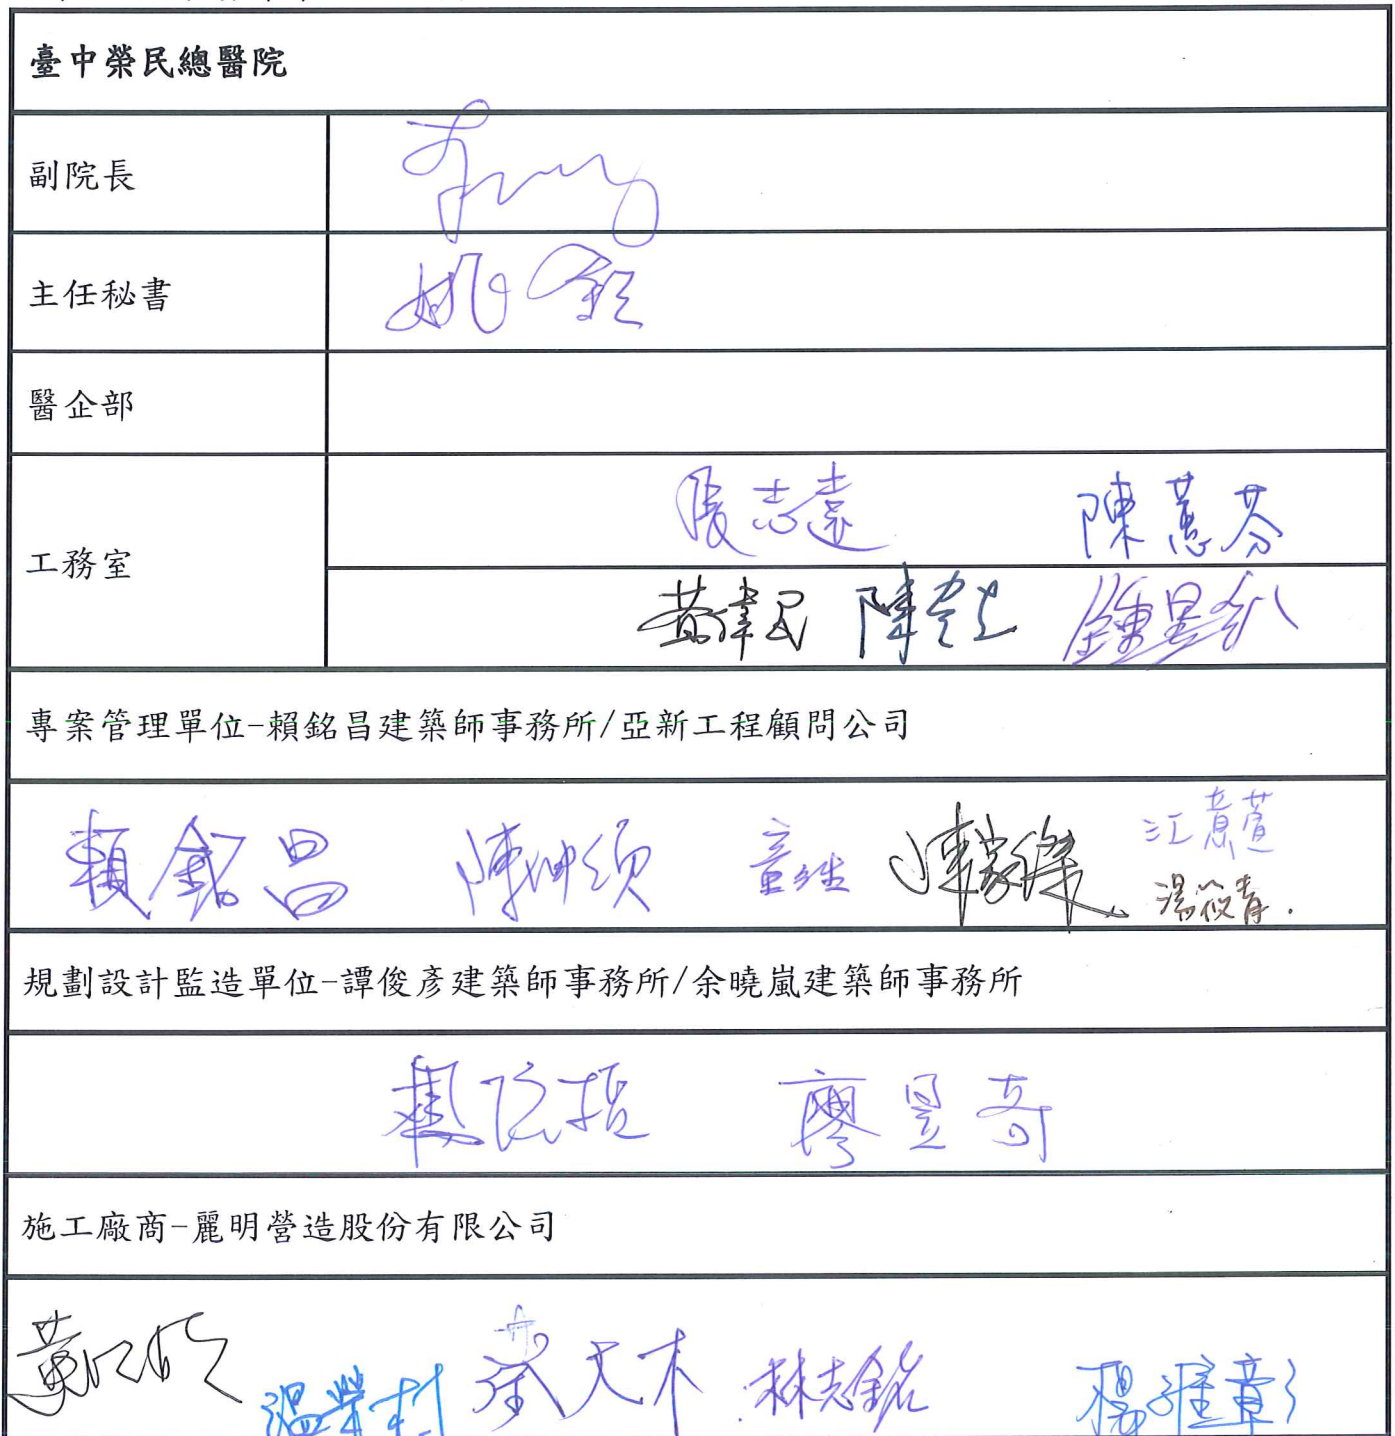 臺中榮民總醫院
副院長
主任秘書 姚鈺
醫企部
工務室
張志遠 陳蕙芬
黃偉民
專案管理單位-賴銘昌建築師事務所/亞新工程顧問公司
賴銘昌 陳坤煩 童維 陳家傑 江意萱
湯筱青.
規劃設計監造單位-譚俊彥建築師事務所/余曉嵐建築師事務所
廖昱奇
施工廠商-麗明營造股份有限公司
溫榮村 蔡天木 林志銘 楊雅彰